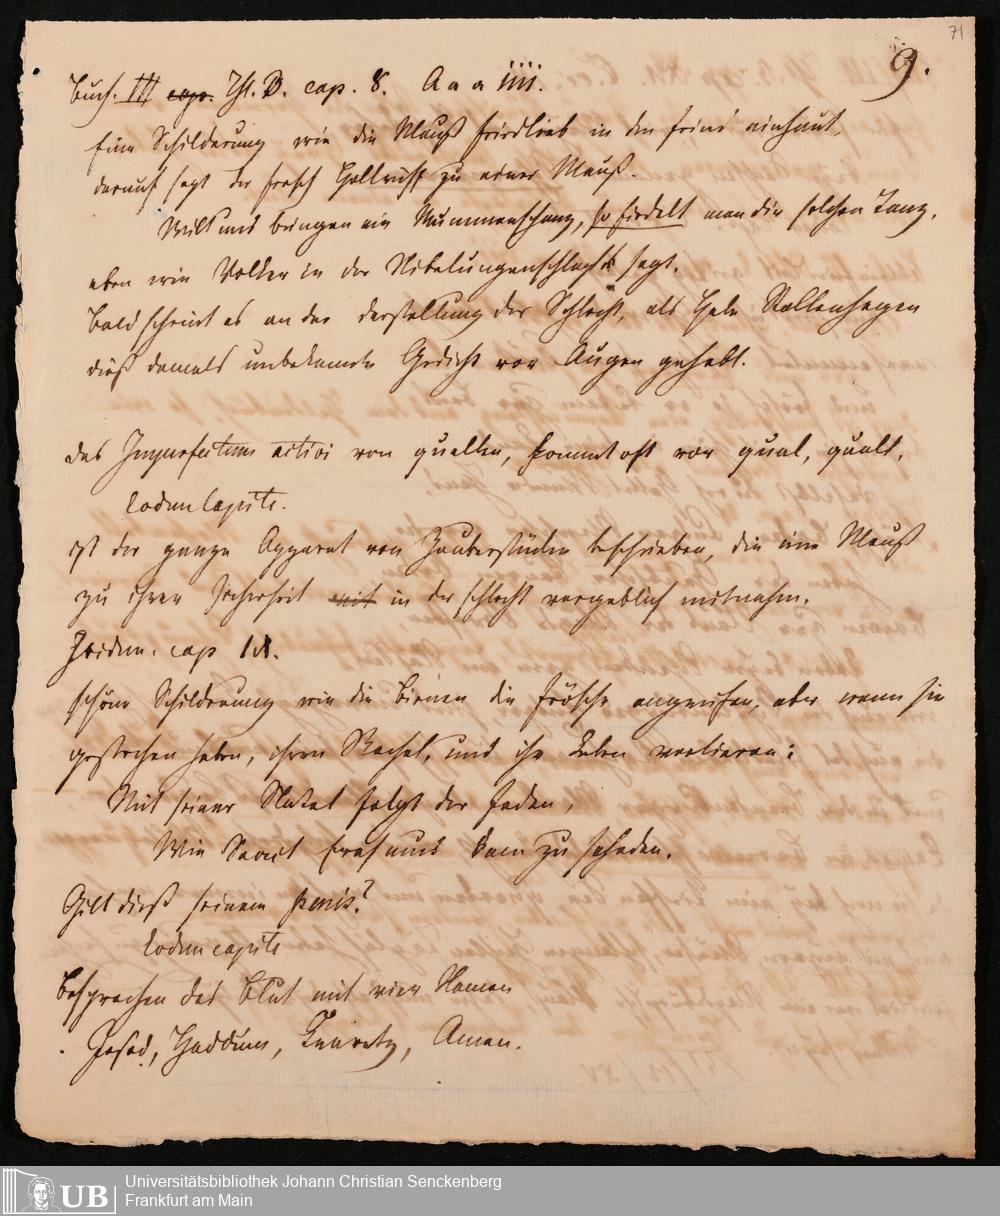 71
9.
Buch. III cap. Thl. D. cap. 8. A a a iiii.
Eine Schilderung wie die Mauß Friedlieb in die feind einhaut,
darauf sagt der frosch zu einer Mauß.
Wilt uns bringen ein Mummenschanz, so fiedelt man dir solchen Tanz,
eben wie Volker in der Nibelungenschlacht sagt.
Bald scheint es an der darstellung der Schlacht, als habe Rollenhagen
dieß damals unbekannte Gedicht vor Augen gehabt.
das Imperfectum activi von quellen, kommt oft vor qual, qualt,
Eodem Capite.
ist der ganze Apparat von Zauberstücken beschrieben, die eine Mauß
zu ihrer Sicherheit mit in der schlacht vergeblich mitnahm.
Ibidem. cap 11.
schöne Schilderung wie die Bienen die frösche angreifen, aber wenn sie
gestochen haben, ihren Stachel, und ihr Leben verlieren:
Mit seiner Natel folgt der faden,
Wie Sanct Erasmus kam zu schaden.
Gilt dieß seinem penis?
Eodem capite
Besprechen das Blut mit vier Namen
Jesod, Amen.
UB
Universitätsbibliothek Johann Christian Senckenberg
Frankfurt am Main